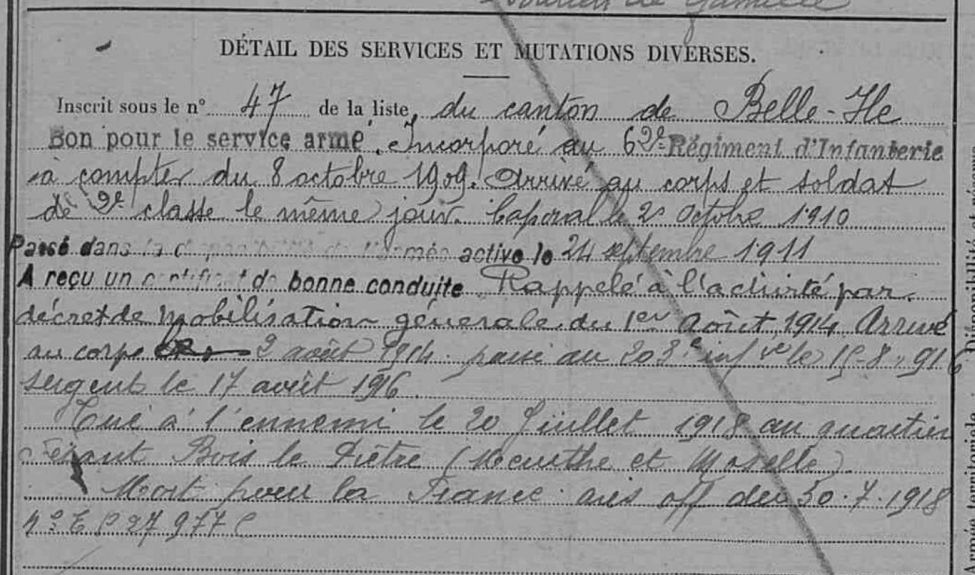 DÉTAIL DES SERVICES ET MUTATIONS DIVERSES.
Inscrit sous le n° 47 de la liste du canton de Belle-Ile
Bon pour le service armé. Incorporé au 62e Régiment d'Infanterie
à compter du 8 octobre 1909. Arrivé au corps et soldat
de 2e classe le même jour. Caporal le 2 octobre 1910
Passé dans la disponibilité de l'armée active le 24 septembre 1911
A reçu un certificat de bonne conduite. Rappelé à l'activité par
décret de Mobilisation générale du 1er Août 1914 Arrivé
au corps 2 août 1914. passé au 203e inf le 15-8-916
sergent le 17 août 1916.
Tué à l'ennemi le 20 Juillet 1918 au quartier
Bois le Prêtre (Meurthe et Moselle).
Mort pour la France avis off du 30.7.1918
27977